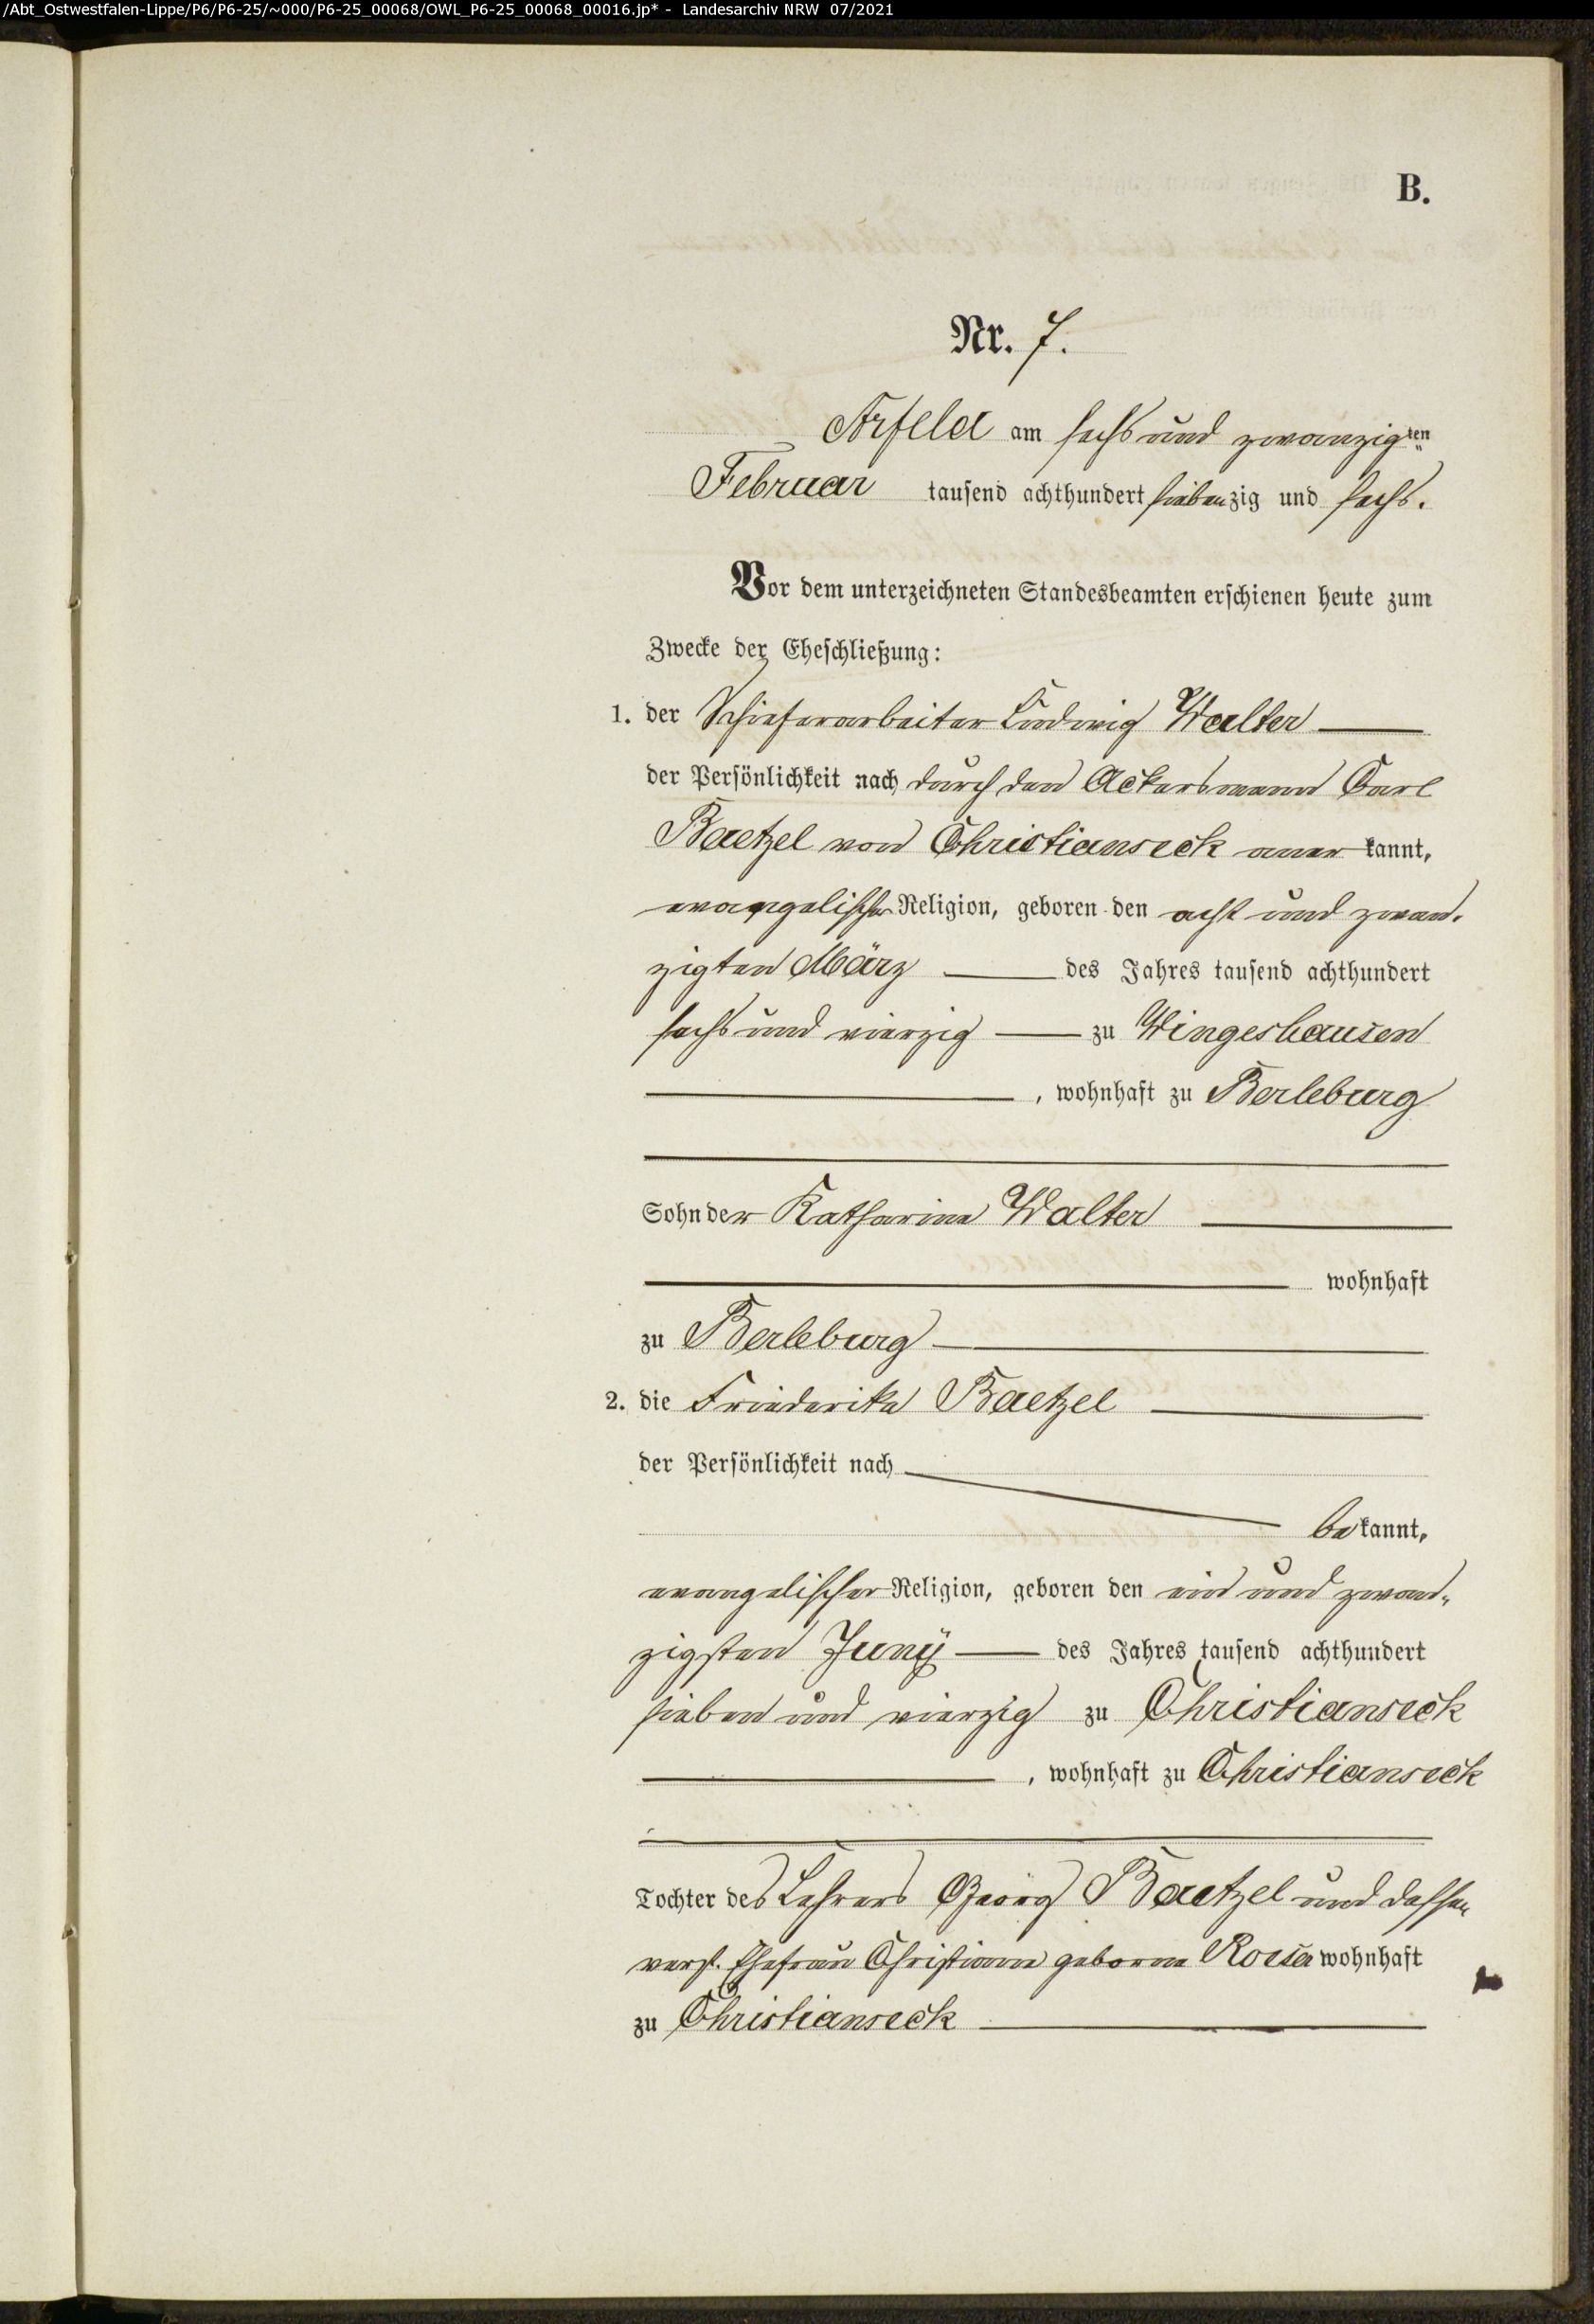 /Abt_Ostwestfalen-Lippe/P6/P6-25/~000/P6-25_00068/OWL_P6-25_00068_00016.jp* - Landesarchiv NRW 07/2021
B.
Nr. 7.
Arfeld am sechs und zwanzigten
Februar tausend achthundert siebenzig und sechs.
Vor dem unterzeichneten Standesbeamten erschienen heute zum
Zwecke der Eheschließung:
1. der Schieferarbeiter Ludwig Walter
der Persönlichkeit nach durch den Ackersmann Carl
Baetzel von Christianseck aner kannt,
evangelischer Religion, geboren den acht und zwan-
zigten März des Jahres tausend achthundert
sechs und vierzig zu Wingeshausen
, wohnhaft zu Berleburg
Sohn der Katharina Walter
wohnhaft
zu Berleburg
2. die Friederika Baetzel
der Persönlichkeit nach
be kannt,
evangelischer Religion, geboren den ein und zwan-
zigsten Juny des Jahres tausend achthundert
sieben und vierzig zu Christianseck
, wohnhaft zu Christianseck
Tochter des Lehrers Georg Baetzel und dessen
verst. Ehefrau Christiane geborne wohnhaft
zu Christianseck